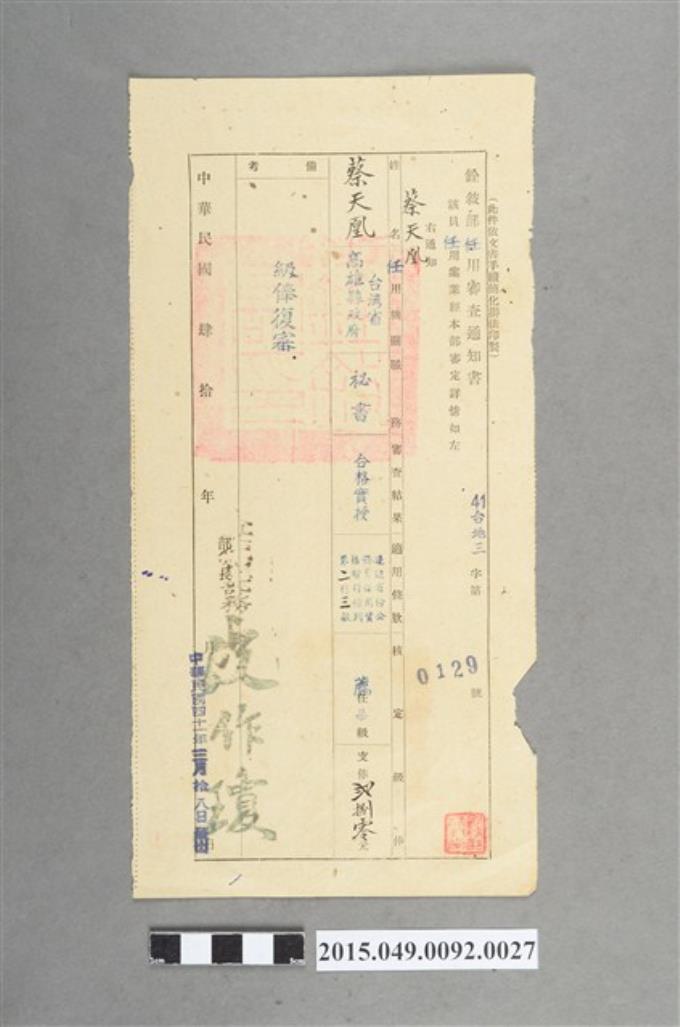 (此件依文書手續簡化辦法印製)
銓敘部任用審查通知書
41台地三字第0129號
該員任用案業經本部審定詳情如左
右通知
蔡天凰
姓名
任用機關職務
審查結果
適用條款
核定級俸
蔡天凰
台湾省
高雄縣政府
祕書
合格實授
第二條三款
薦任
級
支俸
捌零元
備考
級俸復審
中華民國肆拾年
部長
皮作瓊
中華民國四十一年三月拾八日
2015.049.0092.0027